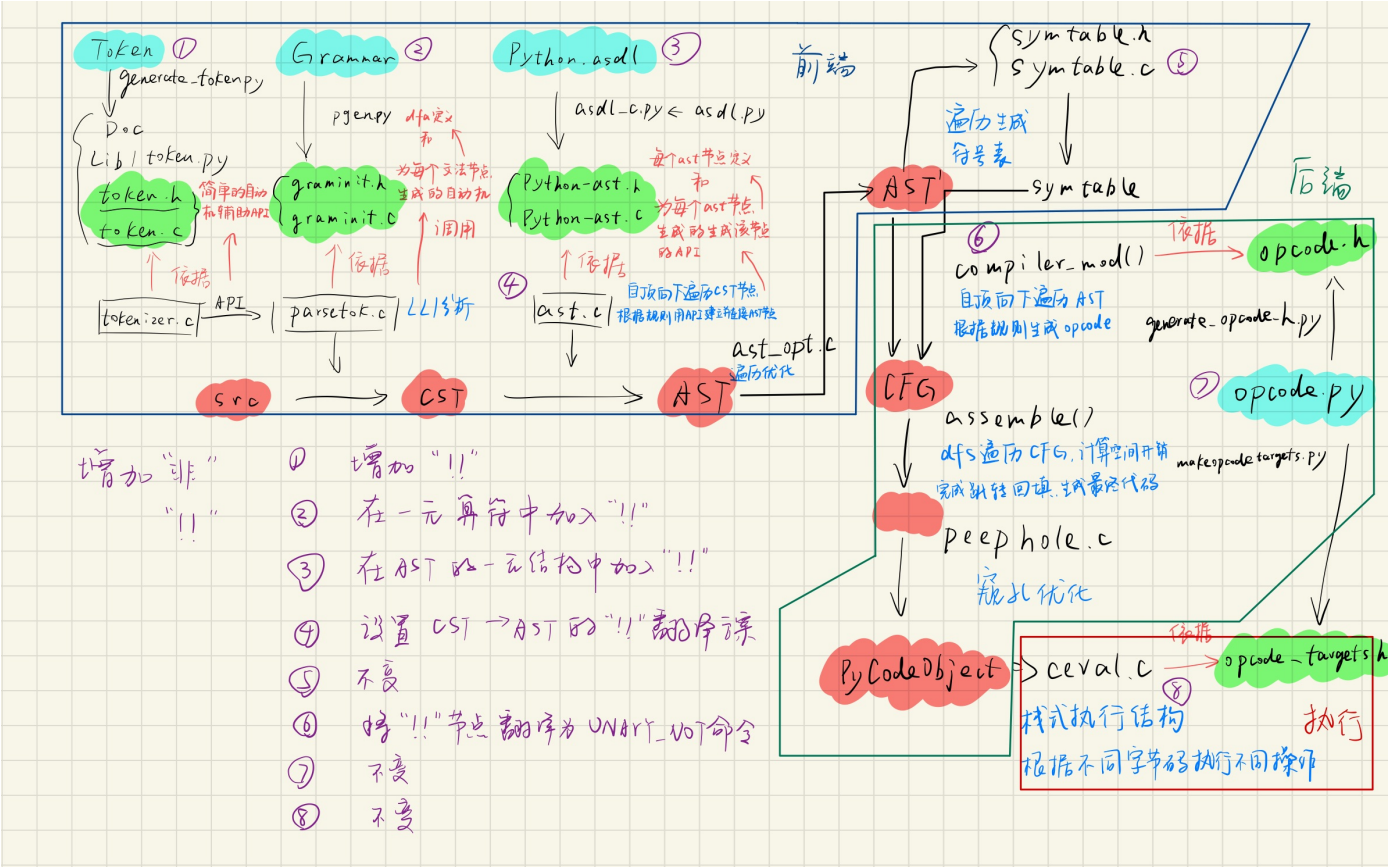 Token ①
generate_token.py
Doc
Lib / token.py
token.h
token.c
简单的自动
机辅助API
依据
tokenizer.c
API
Grammar ②
pgen.py
dfa定义
和
为每个文法节点
生成的自动机
graminit.h
graminit.c
调用
依据
parsetok.c
LL1分析
Python.asdl ③
asdl_c.py ← asdl.py
每个ast节点定义
和
为每个ast节点
生成的生成该节点
的API
Python-ast.h
Python-ast.c
依据
④
ast.c
自顶向下遍历CST节点
根据规则用API建立并连接AST节点
src
CST
AST
ast_opt.c
遍历优化
前端
symtable.h
symtable.c ⑤
遍历生成
符号表
AST'
symtable
后端
⑥
compiler_mod()
依据
opcode.h
自顶向下遍历AST
根据规则生成opcode
generate_opcode_h.py
CFG
⑦ opcode.py
assemble()
dfs遍历CFG,计算空间开销
完成跳转回填.生成最终代码
makeopcodetargets.py
peephole.c
窥孔优化
PyCodeObject
ceval.c
依据
opcode_targets.h
⑧
栈式执行结构
执行
根据不同字节码执行不同操作
增加"非"
"!!"
① 增加"!!"
② 在一元算符中加入"!!"
③ 在AST的一元结构中加入"!!"
④ 设置CST→AST的"!!"翻译方案
⑤ 不变
⑥ 将"!!"节点翻译为UNARY_NOT命令
⑦ 不变
⑧ 不变